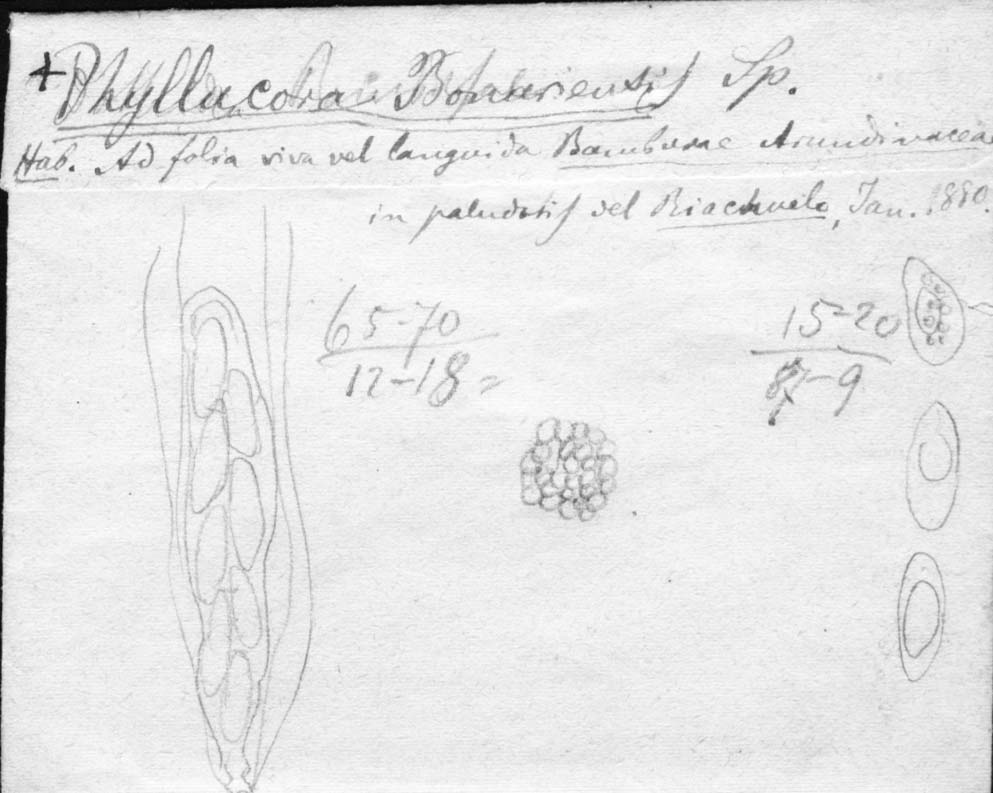 + Phyllachora Bonariensis Sp.
Hab. Ad folia viva vel languida Bambusae Arundinaceae
in paludosis del Riachuelo, Jan. 1880.
65-70
12-18=
15-20
7-9